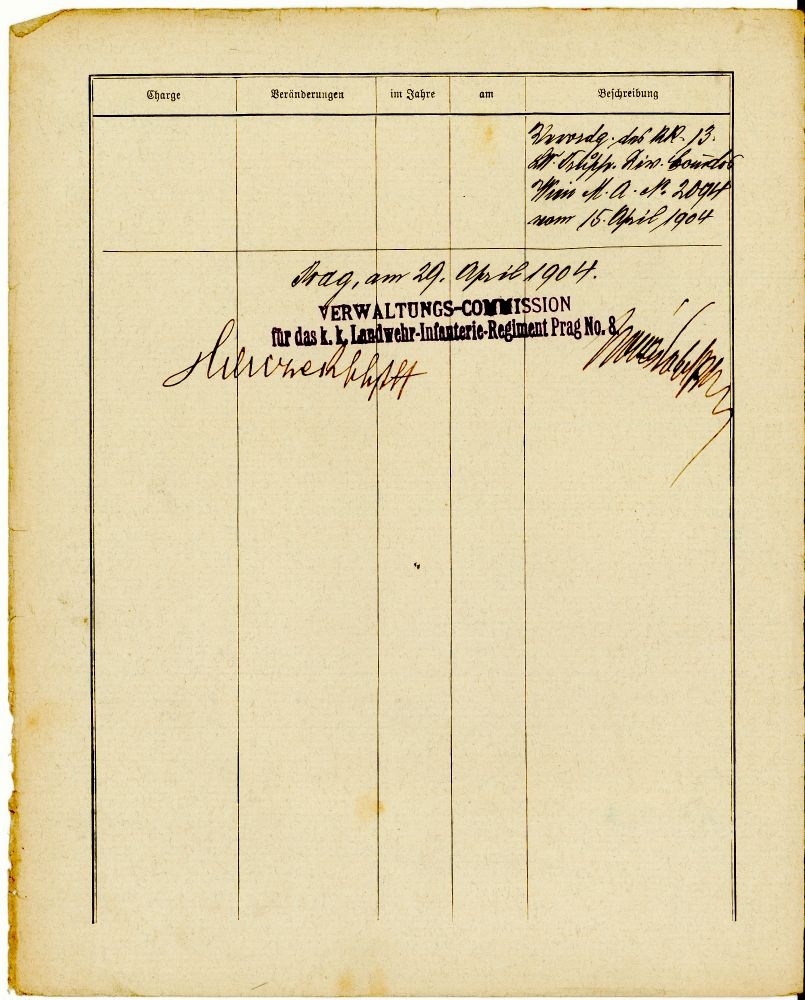 Charge Veränderungen im Jahre am Beschreibung
Verordg. des kk. 13.
LW Trupp. Div. Comdos
Wien M. A. No. 2094
vom 15. April 1904
Prag, am 29. April 1904.
VERWALTUNGS-COMMISSION
für das k. k. Landwehr-Infanterie-Regiment Prag No. 8.